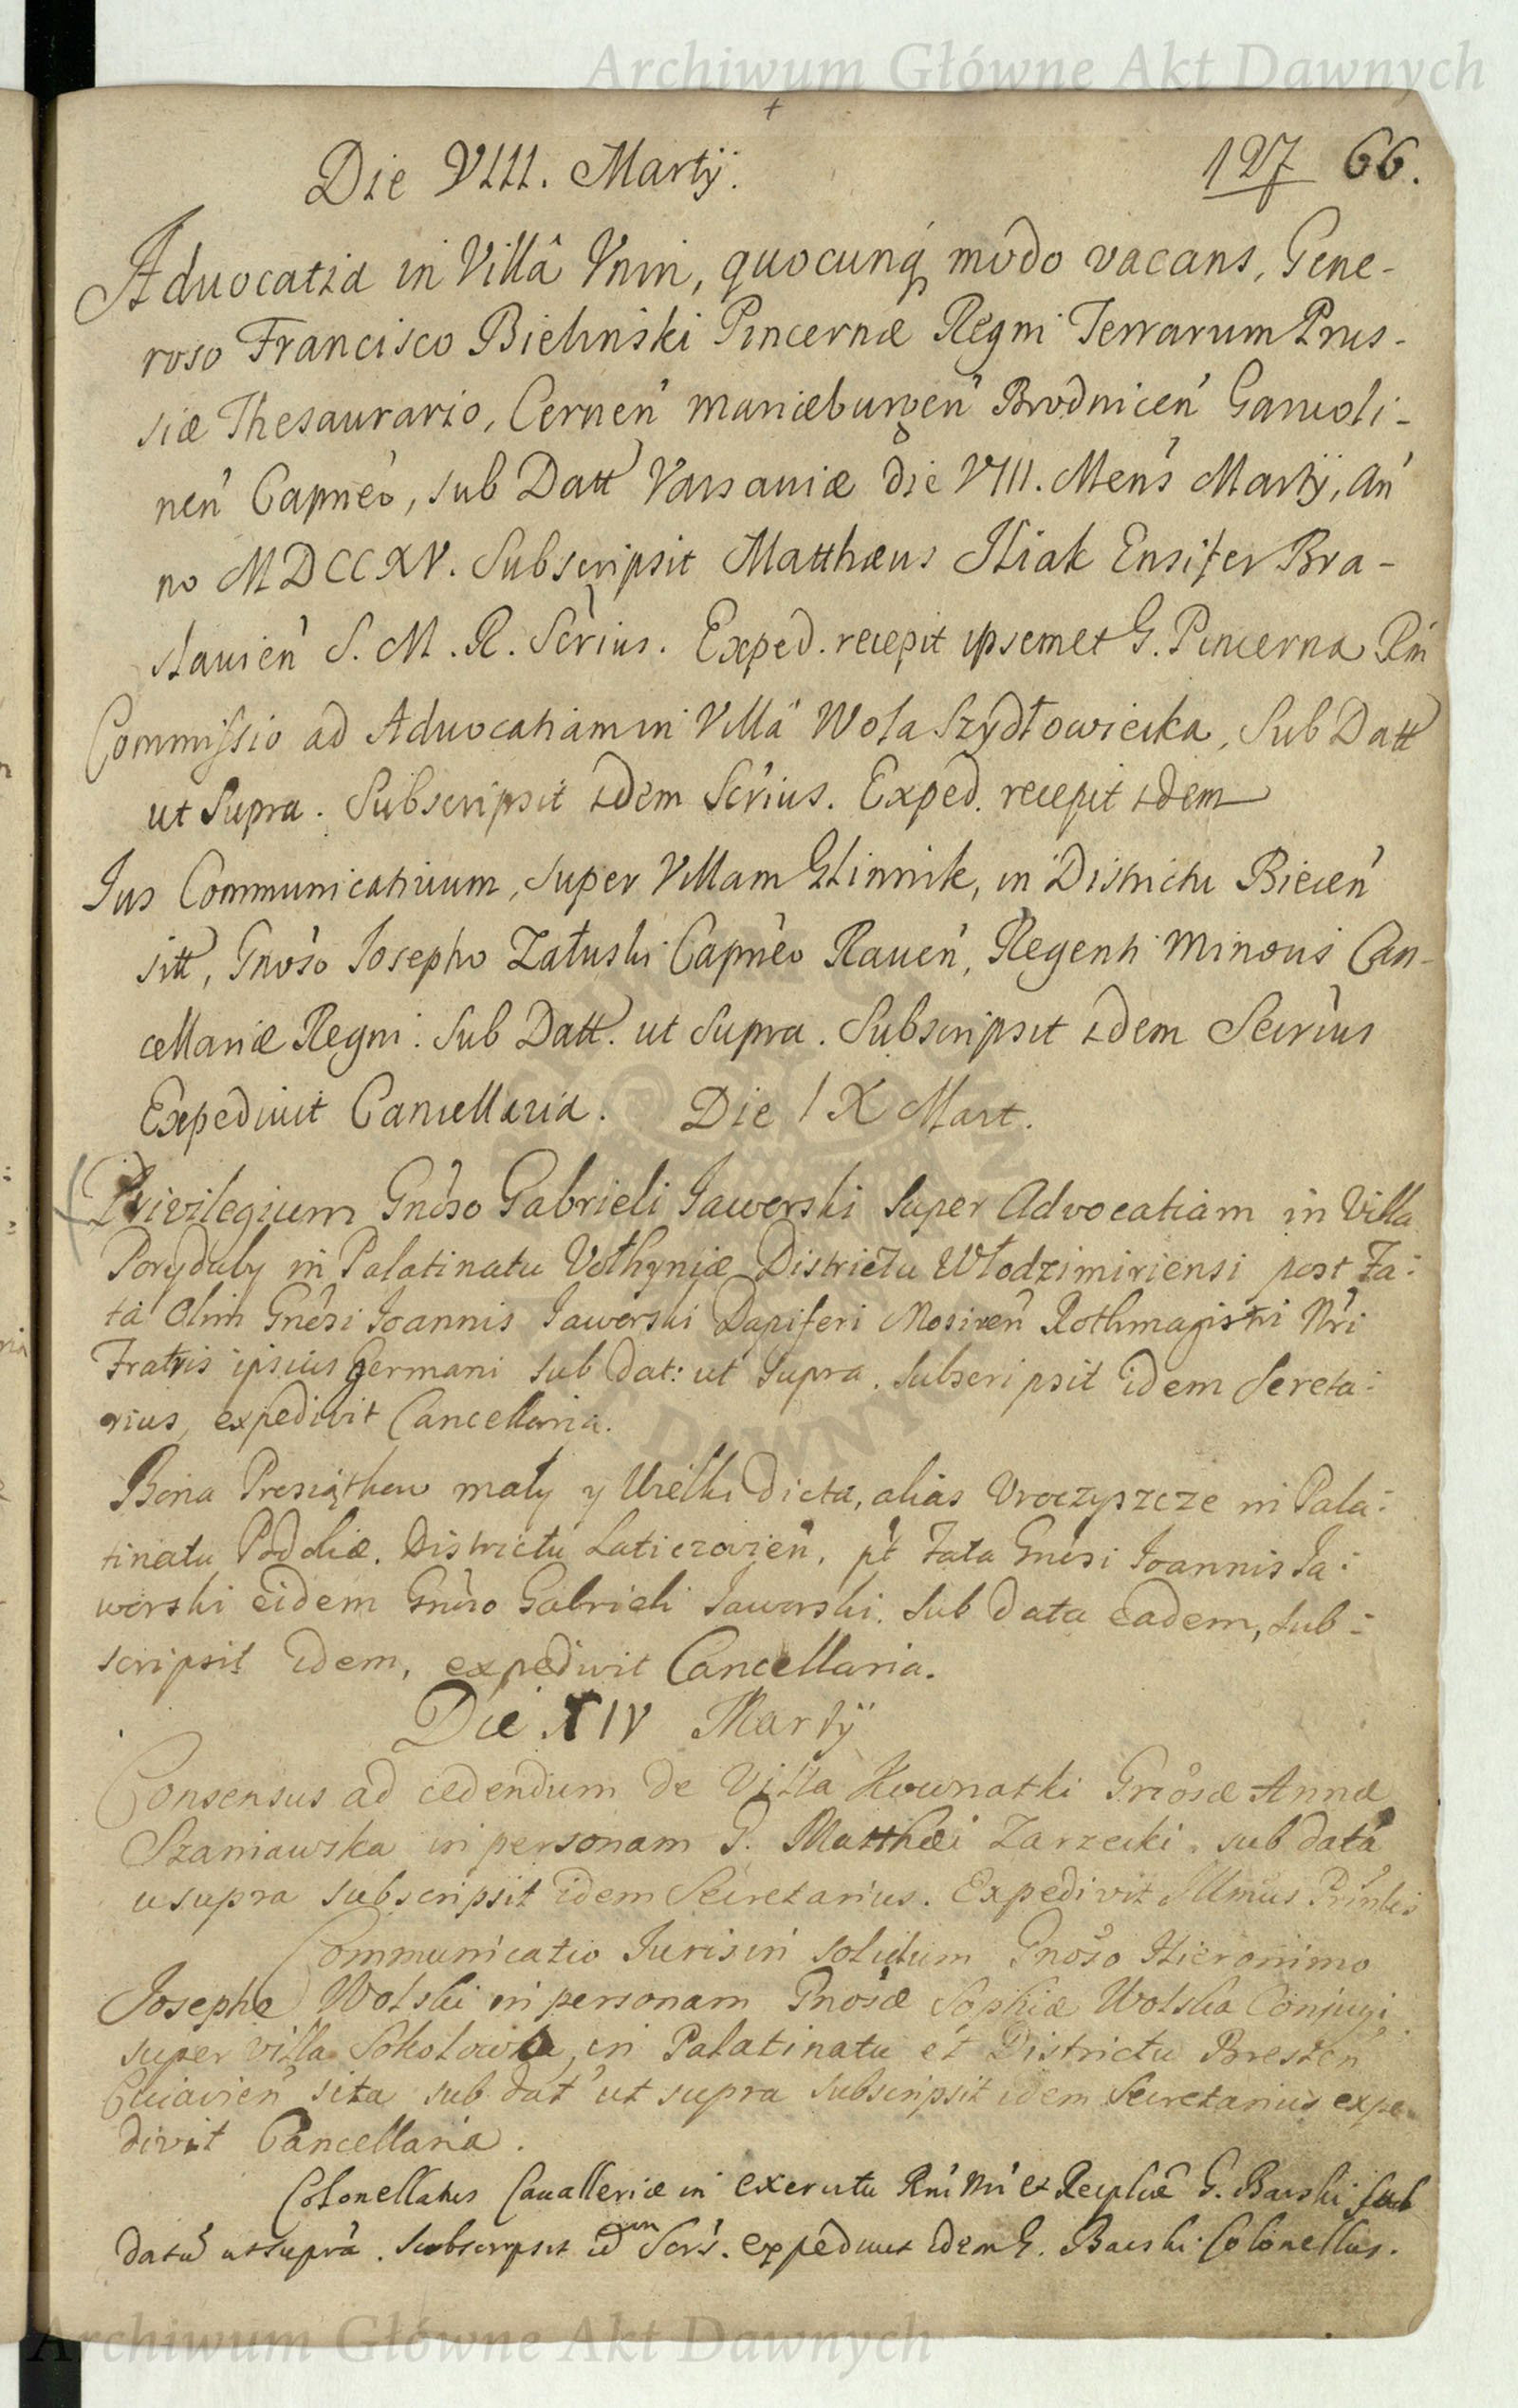 Archiwum Główne Akt Dawnych
Die VIII. Martÿ.
127 66.
Advocatia in Villâ Vnin, quocunq́ modo vacans, Gene-
roso Francisco Bielinski Pincernæ Regni Terrarum Prus-
siæ Thesaurario, Cernen̉ marieburgen̉ Brodnicen̉ Garwoli-
nen̉ Capnẻo, sub Datt Varsaviæ die VIII. Men̉s Martÿ, An̉
no MDCCXV. Subscripsit Matthæus Iliak Ensifer Bra-
slavien̉ S. M. R. Scr̉ius. Exped. recepit ipsemet G. Pincerna Rni
Commissio ad Advocatiam in Villa Wola Szydłowiecka, Sub Datt
ut Supra. Subscripsit idem Scr̉ius. Exped. recepit idem
Ius Communicativum, super Villam Glinnik, in Districtu Biecen̉
sitt, Gnỏso Iosepho Załuski Capnẻo Raven̉, Regenti Minoris Can-
cellariæ Regni. Sub Datt. ut Supra. Subscripsit idem Secr̉ius
Expedivit Cancellaria. Die IX Mart.
Privilegium Gnỏso Gabrieli Jaworski super Advocatiam in Villa
Poryduby in Palatinatu Volhyniæ Districtu Włodzimiriensi post Fa:
ta Olim Gnỏsi Joannis Jaworski Dapiferi Mosiren̉ Rothmagistri Nr̉i
Fratris ipsius germani sub dat: ut supra. subscripsit idem Sereta:
rius, expedivit Cancellaria.
Bona małý y Wielki dicta, alias Vroczyszcze in Pala:
tinatu Podoliæ. Districtu Laticzovien̉, pt̉ Fata Gnỏsi Joannis Ja:
worski eidem Gnỏso Gabrieli Jaworski. sub data eadem, sub:
scripsit idem, expedivit Cancellaria.
Die XIV Martÿ
Consensus ad cedendum de Villa Kownatki Gnỏsæ Annæ
Szaniawska in personam G. Matthæi Zarzecki. sub data
u supra subscripsit idem Secretarius. Expedivit Illmus
Communicatio Iuris in solidum Gnỏso Hieronimo
Josepho Wolski in personam Gnỏsæ Sophiæ Wolska Conjugi
super villa Sokolowka, in Palatinatu et Districtu Bresten̉
Cuiavien̉ sita sub dat̉ ut supra subscripsit idem Secretarius expe-
divit Cancellaria.
Colonellatus Cavalleriæ in exercitu Rni Nri et Reiplicæ G. Barski sub
datu̕ ut supra. Subscripsit idem Scr̉s. expedivit idem G. Barski Colonellus.
Archiwum Główne Akt Dawnych